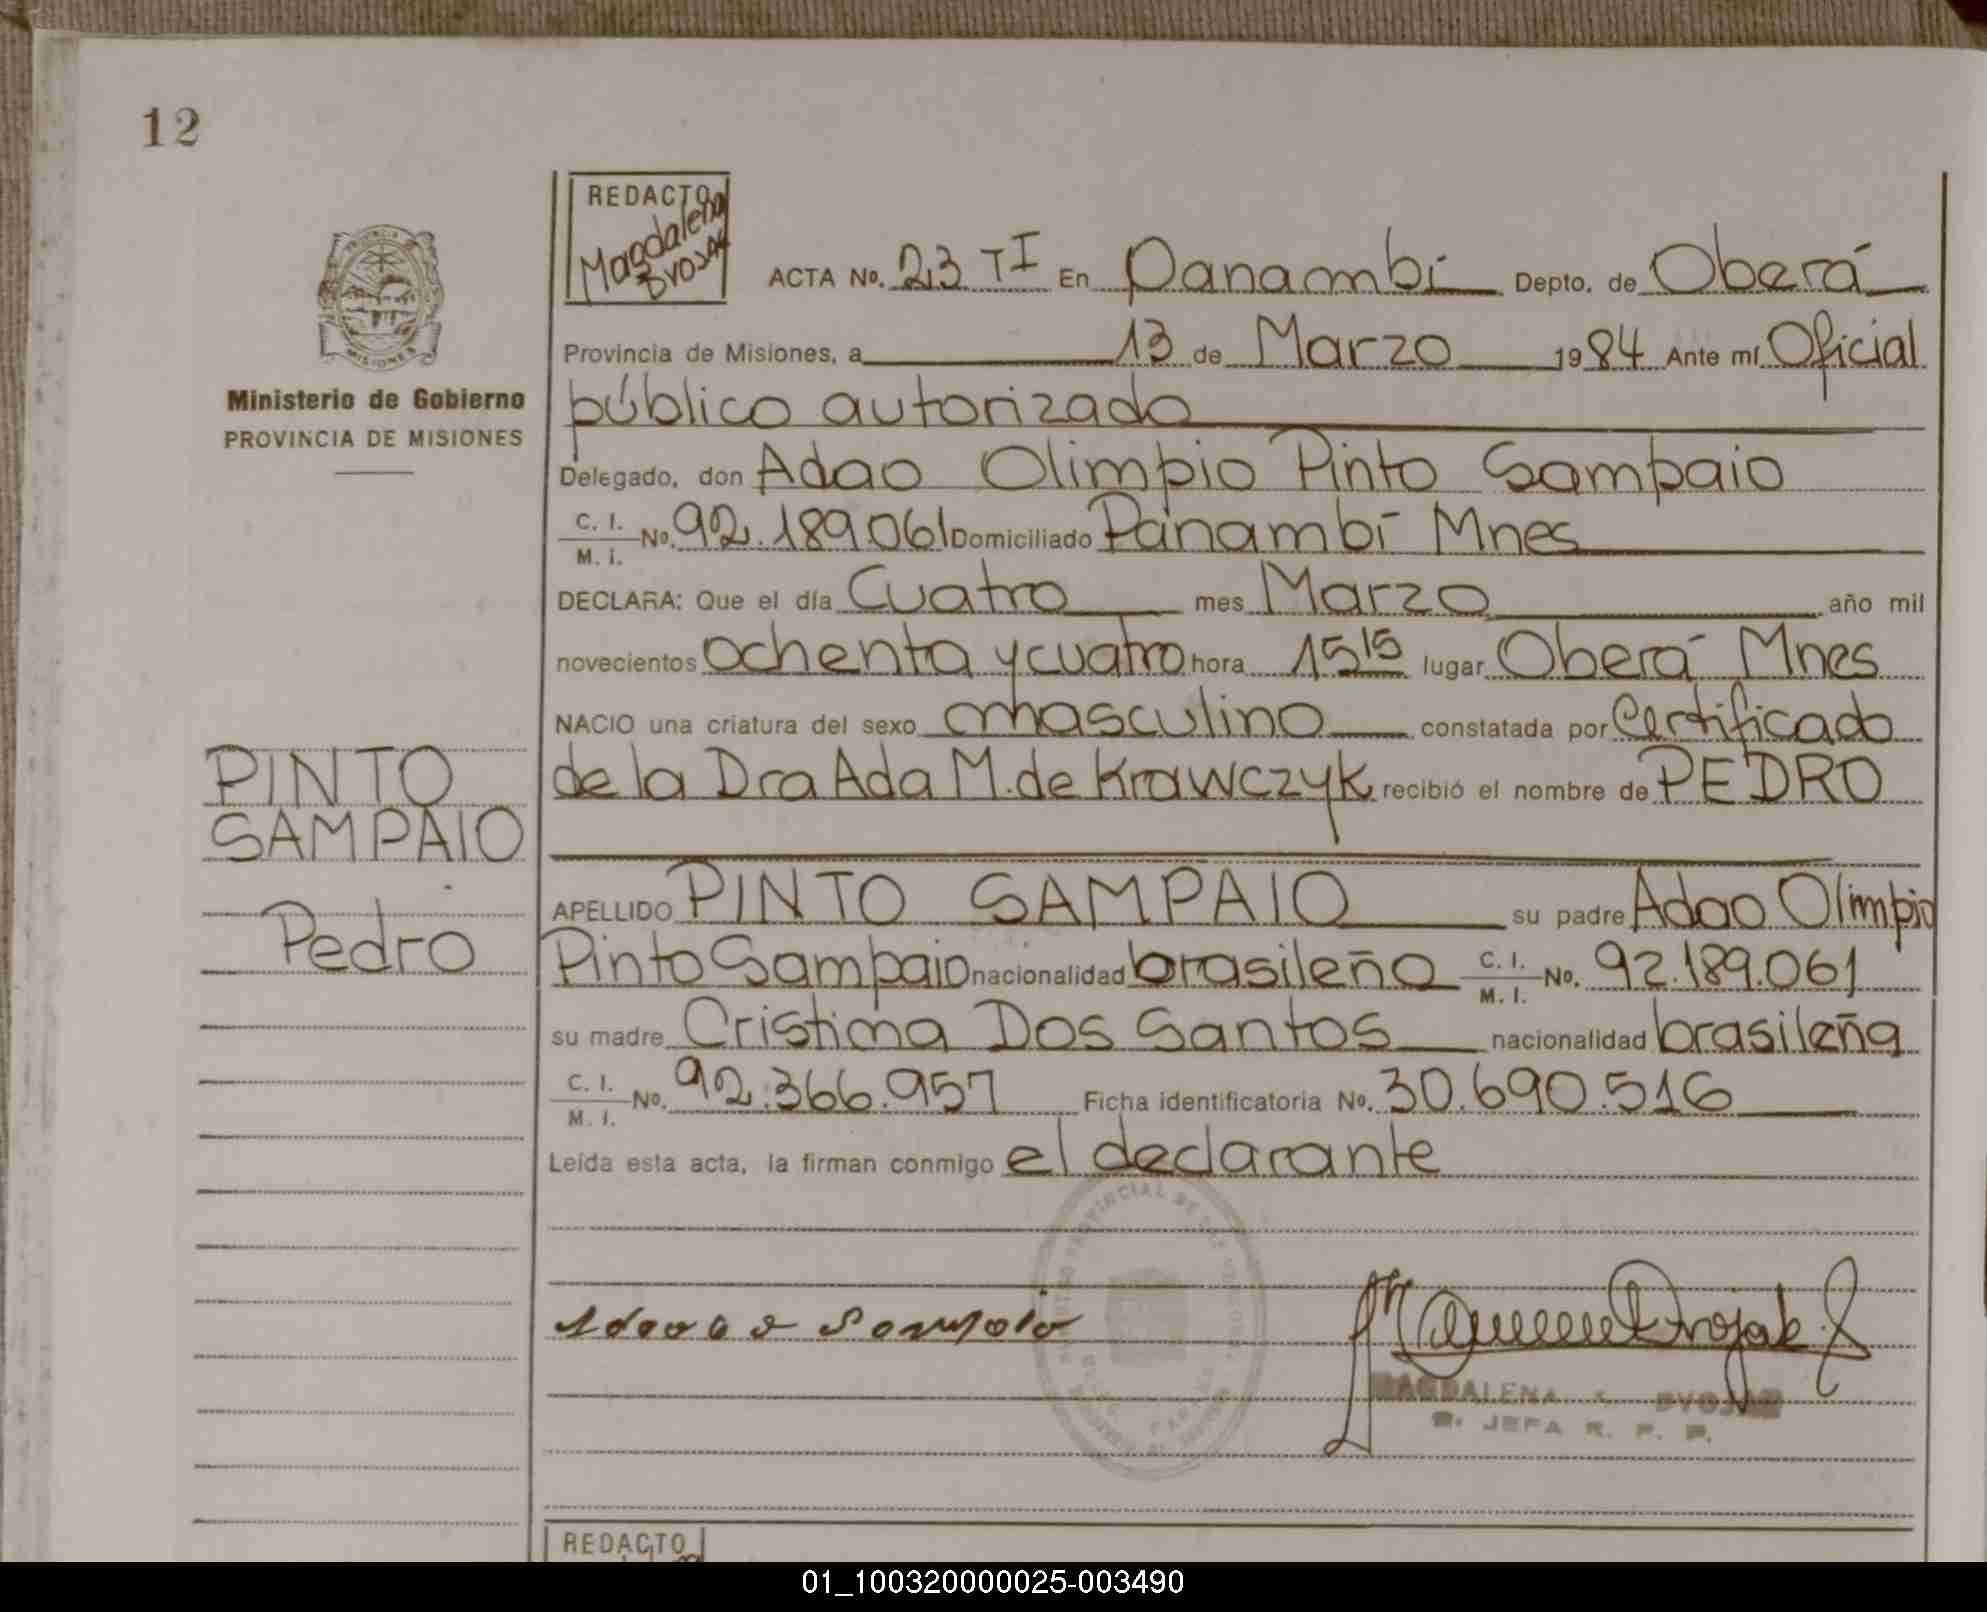 12
PROVINCIA DE
MISIONES
Ministerio de Gobierno
PROVINCIA DE MISIONES
REDACTO
Magdalena
ACTA No. 23 TI En Panambí Depto. de Oberá
Provincia de Misiones, a 13 de Marzo 1984 Ante mí Oficial
público autorizado
Delegado, don Adao Olimpio Pinto Sampaio
C. I. M. I. No. 92.189.061 Domiciliado Panambí Mnes
DECLARA: Que el día Cuatro mes Marzo año mil
novecientos ochenta y cuatro hora 15 15 lugar Oberá Mnes
NACIO una criatura del sexo masculino constatada por Certificado
de la Dra Ada M. de Krawczyk recibió el nombre de PEDRO
PINTO
SAMPAIO
Pedro
APELLIDO PINTO SAMPAIO su padre Adao Olimpio
Pinto Sampaio nacionalidad brasileño C. I. M. I. No. 92.189.061
su madre Cristina Dos Santos nacionalidad brasileña
C. I. M. I. No. 92.366.957 Ficha identificatoria No. 30.690.516
Leída esta acta, la firman conmigo el declarante
Sampaio
MAGDALENA
JEFA R. P. P.
REDACTO
01_100320000025-003490